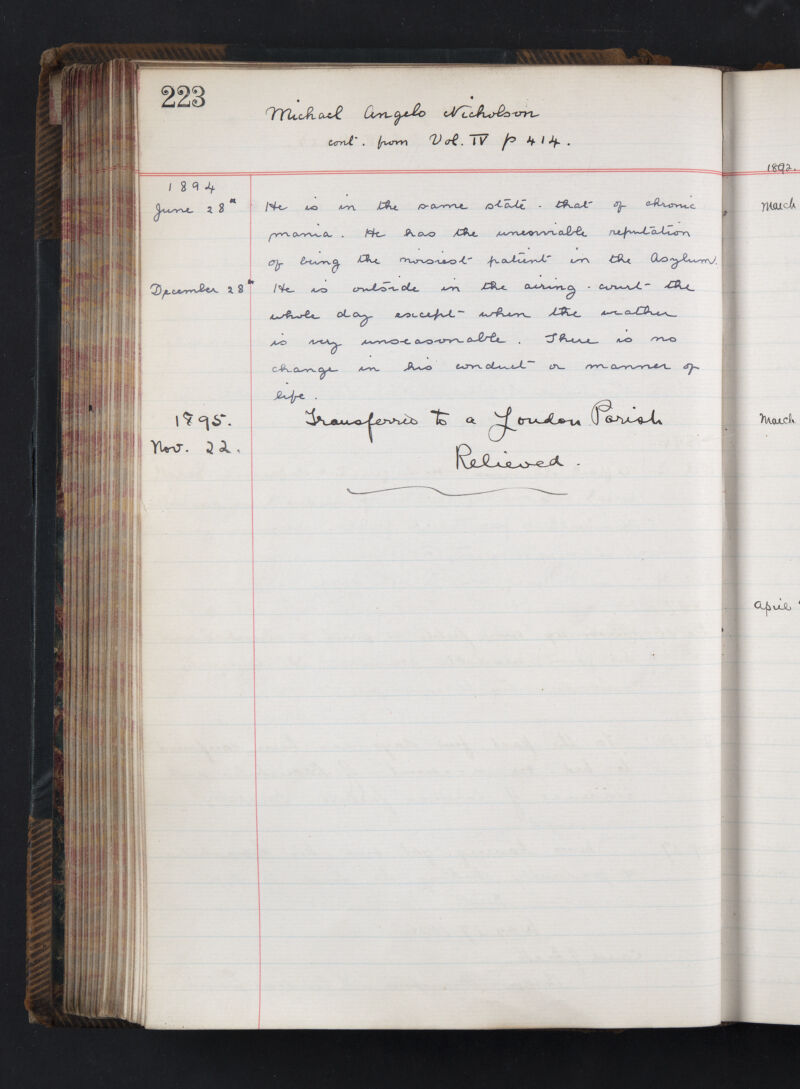 223
Michael Angelo Nicholson
cont. from Vol. IV p 414.
1894
June 28th He is in the same state - that of chronic
mania. He has the unenviable reputation
of being the noisiest patient in the Asylum.
December 28th He is outside in the airing-court the
whole day except when the weather
is very unseasonable. There is no
change in his conduct or manner of
life.
1895.
Nov. 22. Transferred to a London Parish
Relieved.
1892.
March
March
April